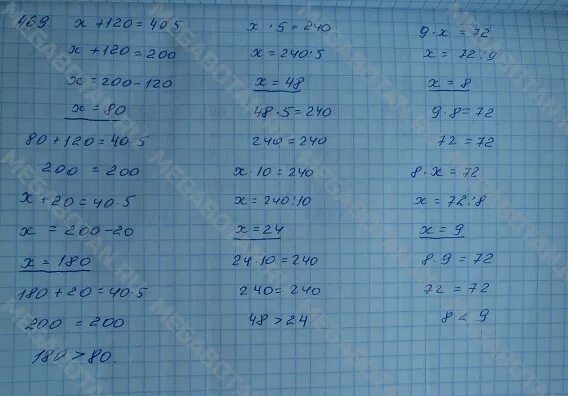 469. x + 120 = 40·5
x + 120 = 200
x = 200 - 120
x = 80
80 + 120 = 40·5
200 = 200
x + 20 = 40·5
x = 200 - 20
x = 180
180 + 20 = 40·5
200 = 200
180 > 80.
x · 5 = 240
x = 240:5
x = 48
48·5 = 240
240 = 240
x·10 = 240
x = 240:10
x = 24
24·10 = 240
240 = 240
48 > 24
9·x = 72
x = 72:9
x = 8
9·8 = 72
72 = 72
8·x = 72
x = 72:8
x = 9
8·9 = 72
72 = 72
8 < 9